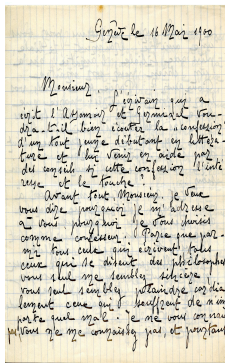 Genève le 16 Mai 1900
Monsieur,
L'écrivain qui a
écrit l'Assommoir et Germinal vou-
dra-t-il bien écouter la "confession"
d'un tout jeune débutant en littéra-
ture et lui venir en aide par
des conseils si cette confession l'inté
resse et le touche ?
Avant tout, Monsieur, je veux
vous dire pourquoi je m'adresse
à vous pourquoi je vous choisis
comme confesseur. Parce que par-
mi tous ceux qui écrivent, tous
ceux qui se disent des philosophes
vous seul me semblez sincère,
vous seul semblez plaindre cordia
lement ceux qui souffrent de n'im
porte quel mal. Je ne vous connais
pas vous ne me connaissez pas et pourtant